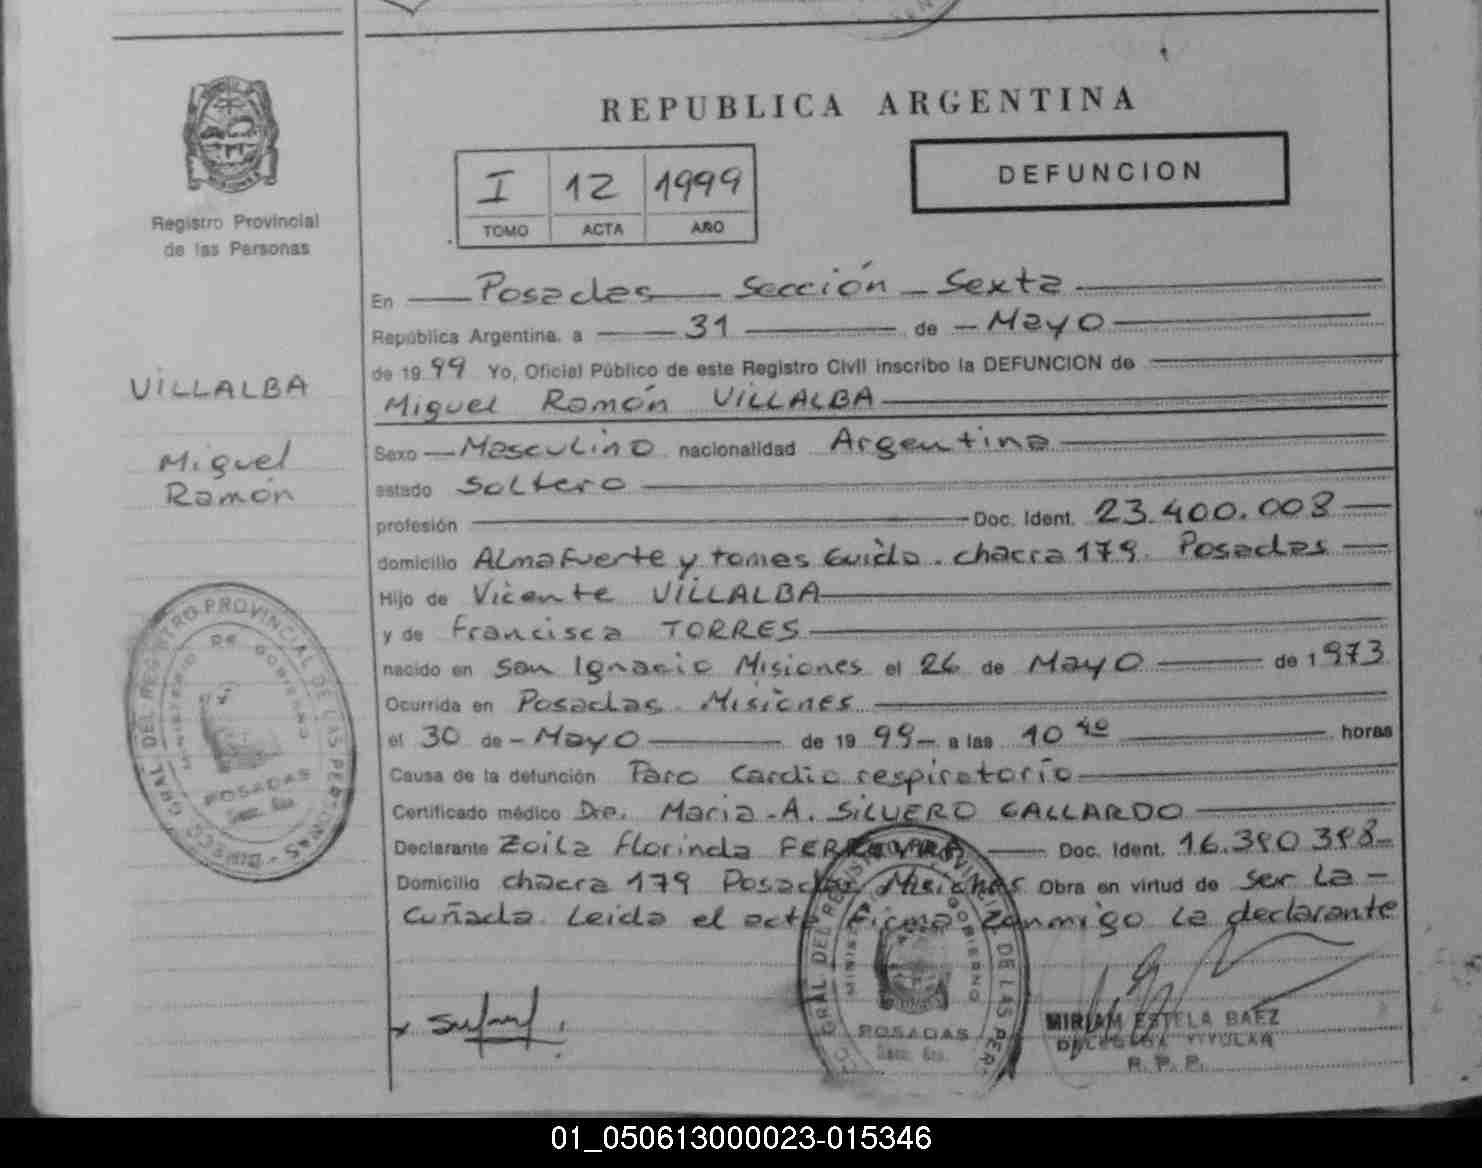 REPUBLICA ARGENTINA
I 12 1999
TOMO ACTA AÑO
DEFUNCION
Registro Provincial
de las Personas
VILLALBA
Miguel
Ramón
En Posadas Sección Sexta
República Argentina, a 31 de Mayo
de 1999 Yo, Oficial Público de este Registro Civil inscribo la DEFUNCION de
Miguel Ramón VILLALBA
Sexo Masculino nacionalidad Argentina
estado Soltero
profesión Doc. Ident. 23.400.008
domicilio Almafuerte y tomas Guido. chacra 179. Posadas
Hijo de Vicente VILLALBA
y de Francisca TORRES
nacido en San Ignacio Misiones el 26 de Mayo de 1973
Ocurrida en Posadas. Misiones
el 30 de Mayo de 1999 a las 10 40 horas
Causa de la defunción Paro Cardio respiratorio
Certificado médico Dra. Maria A. SILVERO GALLARDO
Declarante Zoila Florinda FERREYRA Doc. Ident. 16.390.398
Domicilio chacra 179 Posadas Misiones Obra en virtud de ser la
Cuñada. Leida el acta firma conmigo la declarante
MIRIAM ESTELA BAEZ
DELEGADA TITULAR
R. P. P.
DIRECC. GRAL DEL REGISTRO PROVINCIAL DE LAS PERSONAS
MINISTERIO DE GOBIERNO
POSADAS
Secc. 6ta.
GRAL DEL REGISTRO PROVINCIAL DE LAS PER
MINISTERIO GOBIERNO
POSADAS
Secc. 6ta.
01_050613000023-015346